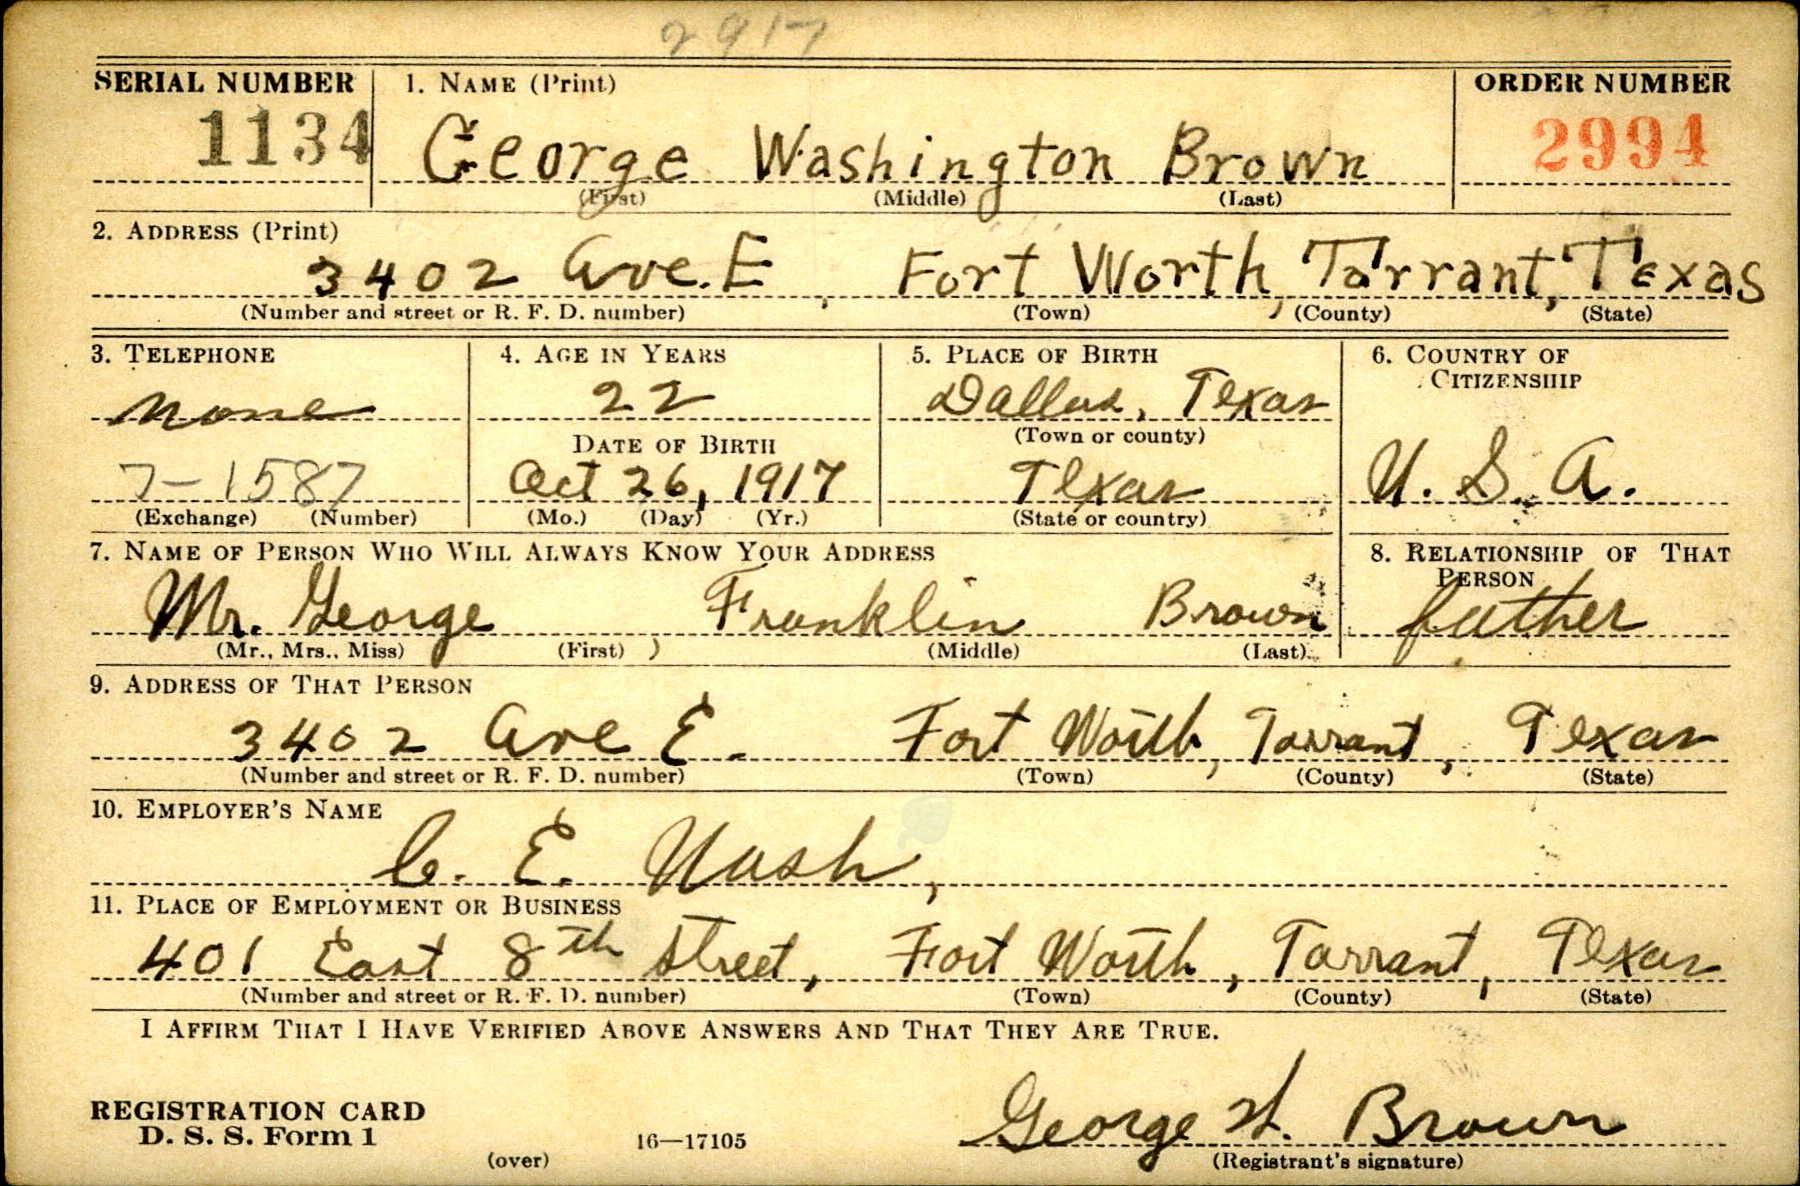 2917
SERIAL NUMBER 1. NAME (Print) ORDER NUMBER
1134 George Washington Brown 2994
(First) (Middle) (Last)
2. ADDRESS (Print)
3402 Ave. E, Fort Worth, Tarrant, Texas
(Number and street or R. F. D. number) (Town) (County) (State)
3. TELEPHONE 4. AGE IN YEARS 5. PLACE OF BIRTH 6. COUNTRY OF CITIZENSHIP
none 22 Dallas, Texas
DATE OF BIRTH (Town or county)
7-1587 Oct 26, 1917 Texas U. S. A.
(Exchange) (Number) (Mo.) (Day) (Yr.) (State or country)
7. NAME OF PERSON WHO WILL ALWAYS KNOW YOUR ADDRESS 8. RELATIONSHIP OF THAT PERSON
Mr. George, Franklin Brown father
(Mr., Mrs., Miss) (First) (Middle) (Last)
9. ADDRESS OF THAT PERSON
3402 Ave E. Fort Worth, Tarrant, Texas
(Number and street or R. F. D. number) (Town) (County) (State)
10. EMPLOYER'S NAME
C. E. Nash,
11. PLACE OF EMPLOYMENT OR BUSINESS
401 East 8th Street, Fort Worth, Tarrant, Texas
(Number and street or R. F. D. number) (Town) (County) (State)
I AFFIRM THAT I HAVE VERIFIED ABOVE ANSWERS AND THAT THEY ARE TRUE.
REGISTRATION CARD George W. Brown
D. S. S. Form 1 16—17105
(over) (Registrant's signature)